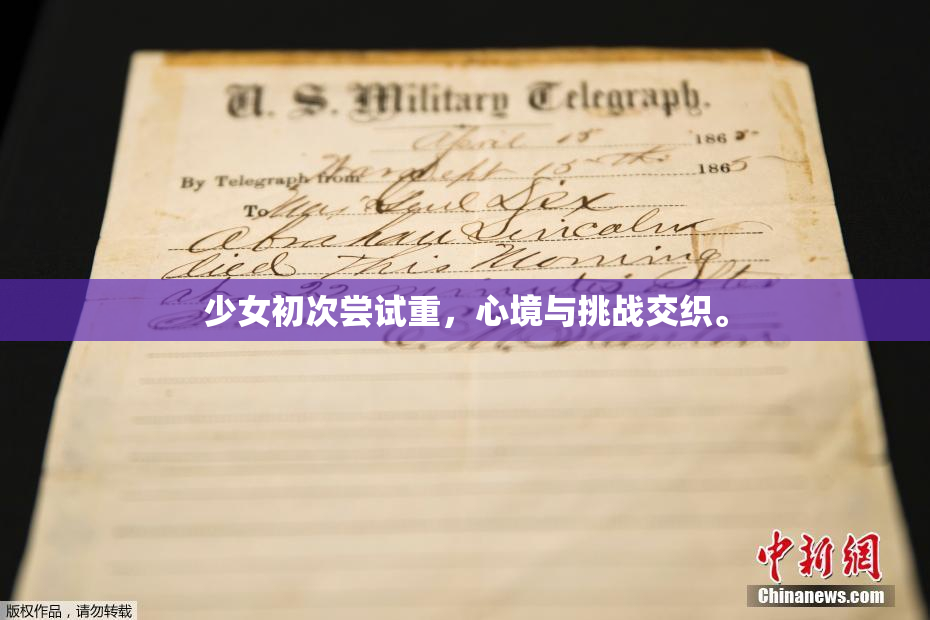 U. S. Military Telegraph.
April 15 1865
By Telegraph from War Dept 15th 1865
To Maj Genl Dix
Abraham Lincoln
died This Morning
at 22 minutes after
少女初次尝试重，心境与挑战交织。
E. M. Stanton
中新網
Chinanews.com
版权作品，请勿转载